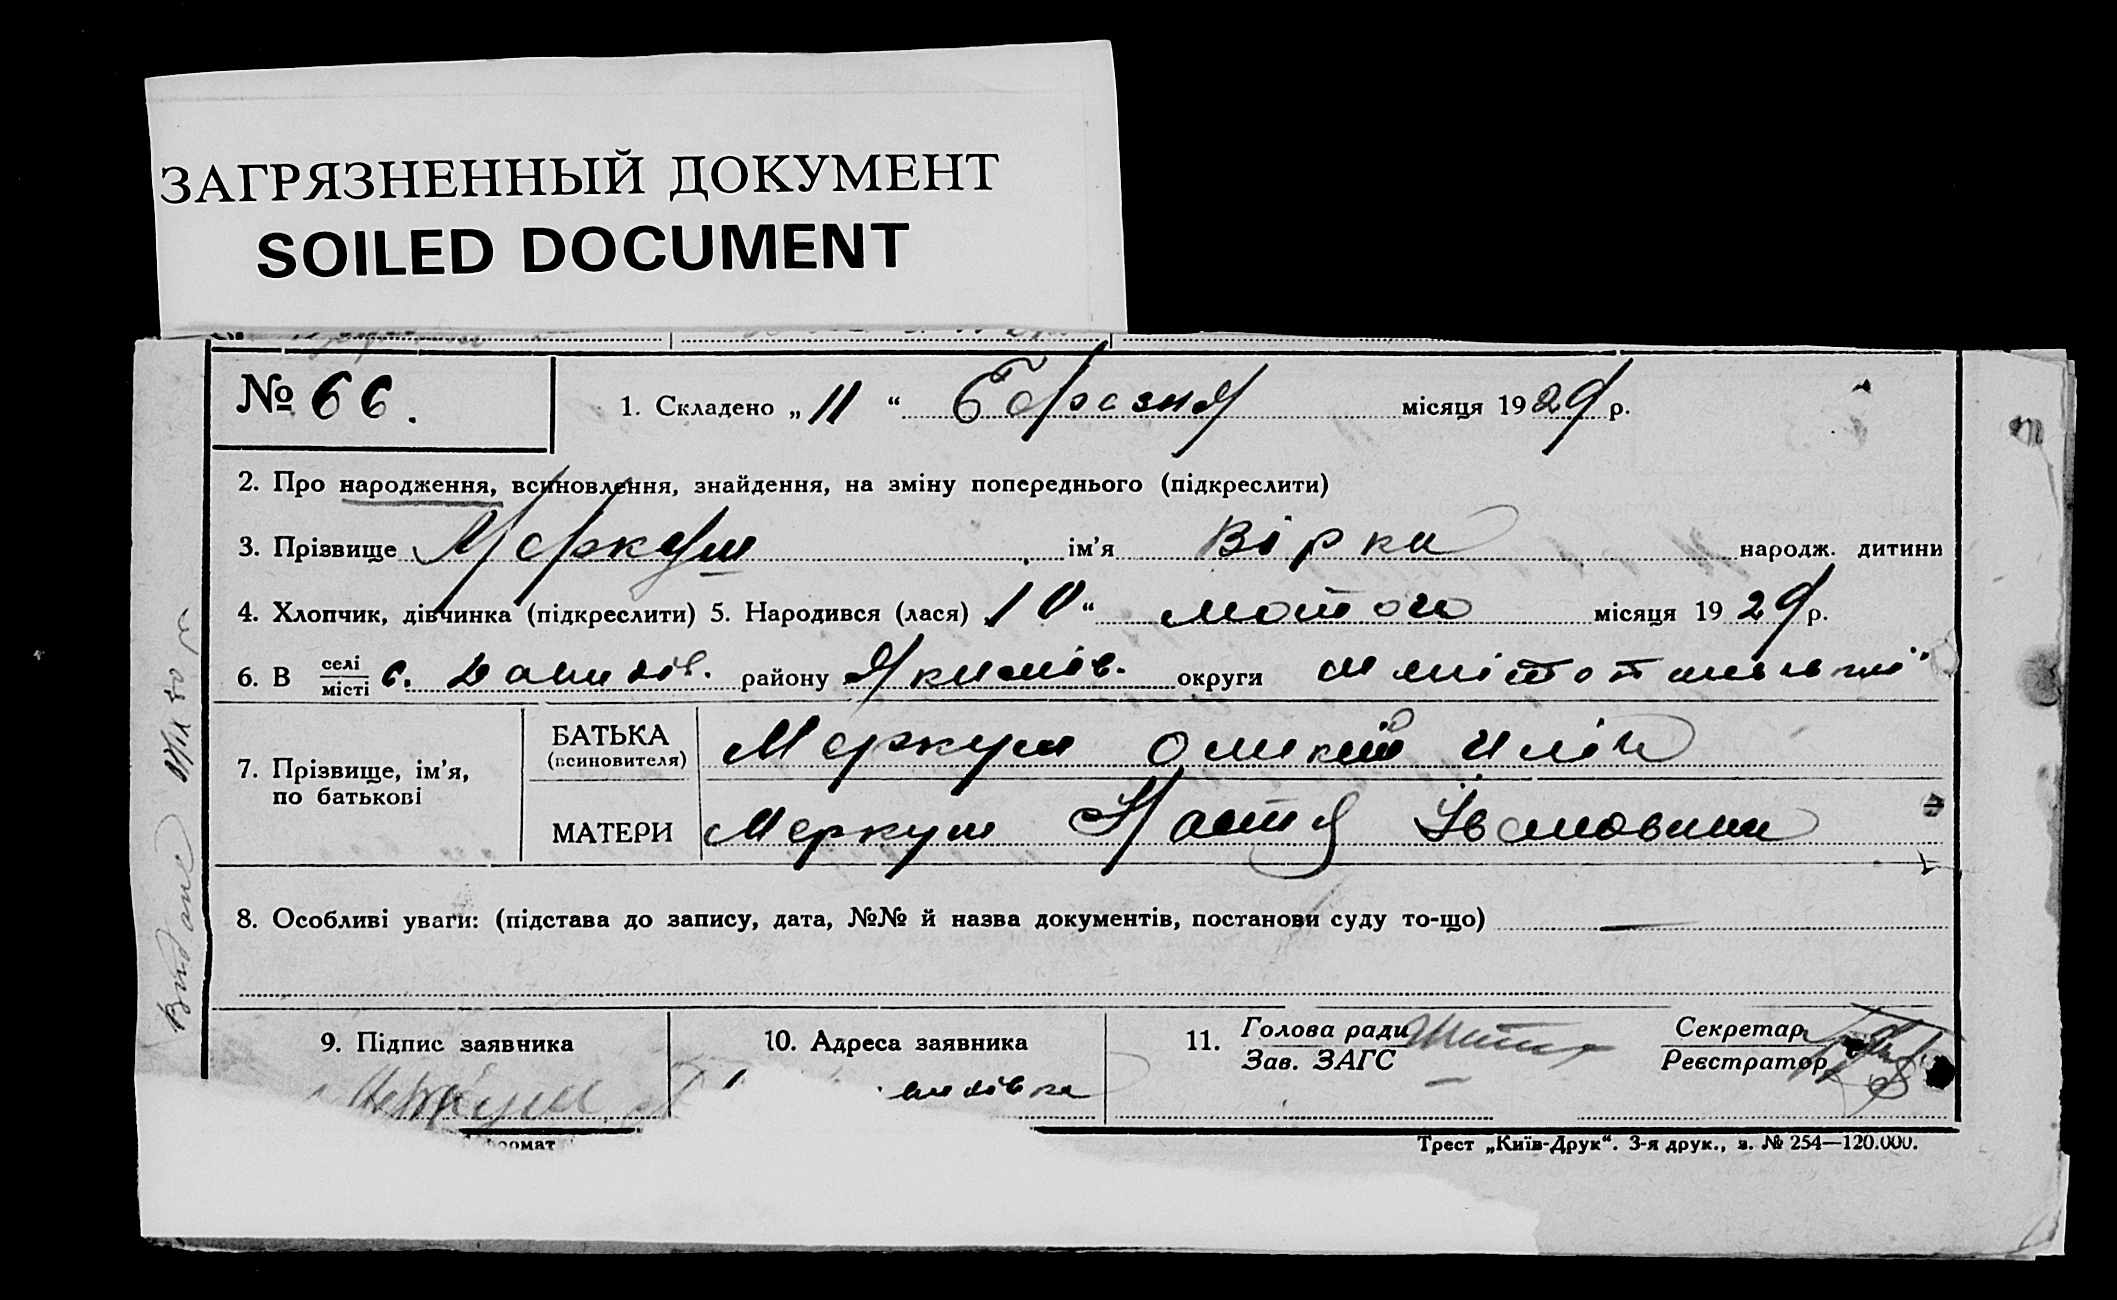 ЗАГРЯЗНЕННЫЙ ДОКУМЕНТ
SOILED DOCUMENT
№ 66.
1. Складено „ 11 “ березня місяця 1929 р.
2. Про народження, всиновлення, знайдення, на зміну попереднього (підкреслити)
3. Прізвище Меркуш ім’я Вірка народж. дитини
4. Хлопчик, дівчинка (підкреслити) 5. Народився (лася) 10 “ лютого місяця 1929 р.
6. В селі місті с. Данилів. району Якимів. округи
7. Прізвище, ім’я, по батькові
БАТЬКА (псиновителя) Меркуш
МАТЕРИ Меркуш Настя Івановина
8. Особливі уваги: (підстава до запису, дата, №№ й назва документів, постанови суду то-що) —
9. Підпис заявника
10. Адреса заявника
11. Голова ради Зав. ЗАГС
Секретар Реєстратор
Меркуш
формат
Трест „Київ-Друк“. 3-я друк., з. № 254—120.000.
Видане